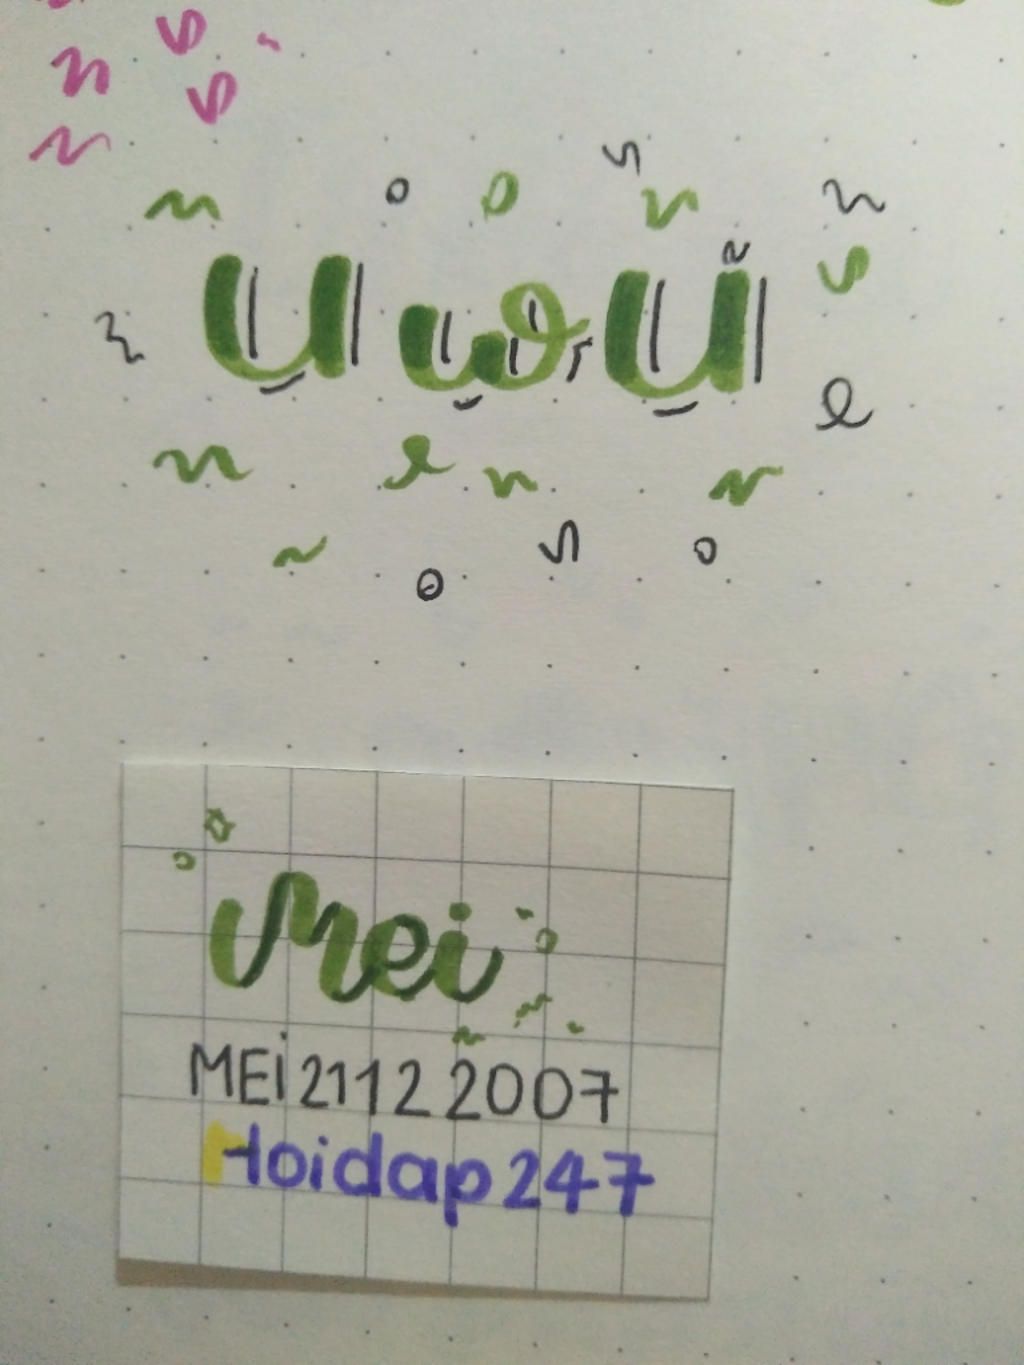 UwU
Mei
MEi21122007
Hoidap247